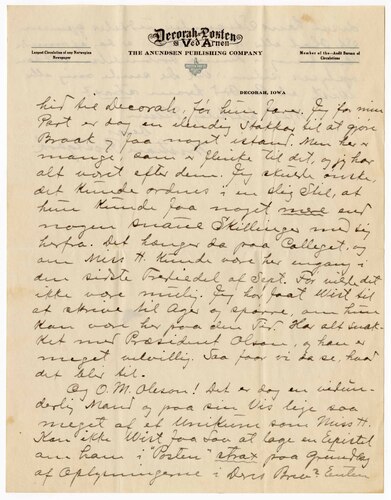 Decorah-Posten
& Ved Arnen
THE ANUNDSEN PUBLISHING COMPANY
Largest Circulation of any Norwegian
Newspaper
Member of the—Audit Bureau of
Circulations
DECORAH, IOWA
hid til Decorah, før hun farer. Jeg for min
Part er dog en elendig Stakkar til at gjøre
Braak og faa noget istand. Men her er
mange, som er flinke til det, og jeg har
alt været efter dem. Jeg skulde ønske,
det kunde ordnes i en slig Stil, at
hun kunde faa noget mere end
nogen snaue Skillinger med sig
herfra. Det hænger da paa Colleget, og
om Miss H. kunde være her engang i
den sidste Fjerdedel af Sept. Før vilde det
ikke være mulig. Jeg har faat Wist til
at skrive til Ager og spørre, om hun
kan være her paa den Tid. Har alt snak-
ket med Præsident Olson, og han er
meget velvillig. Saa faar vi da se, hvad
det blir til.
Og O. M. Oleson! Det er dog en vidun-
derlig Mand og paa sin Vis lige saa
meget af et Unikum som Miss H.
Kan ikke Wist faa Lov at lage en Epistel
om ham i "Posten" strax paa Grundlag
af Oplysningerne i Deres Brev?